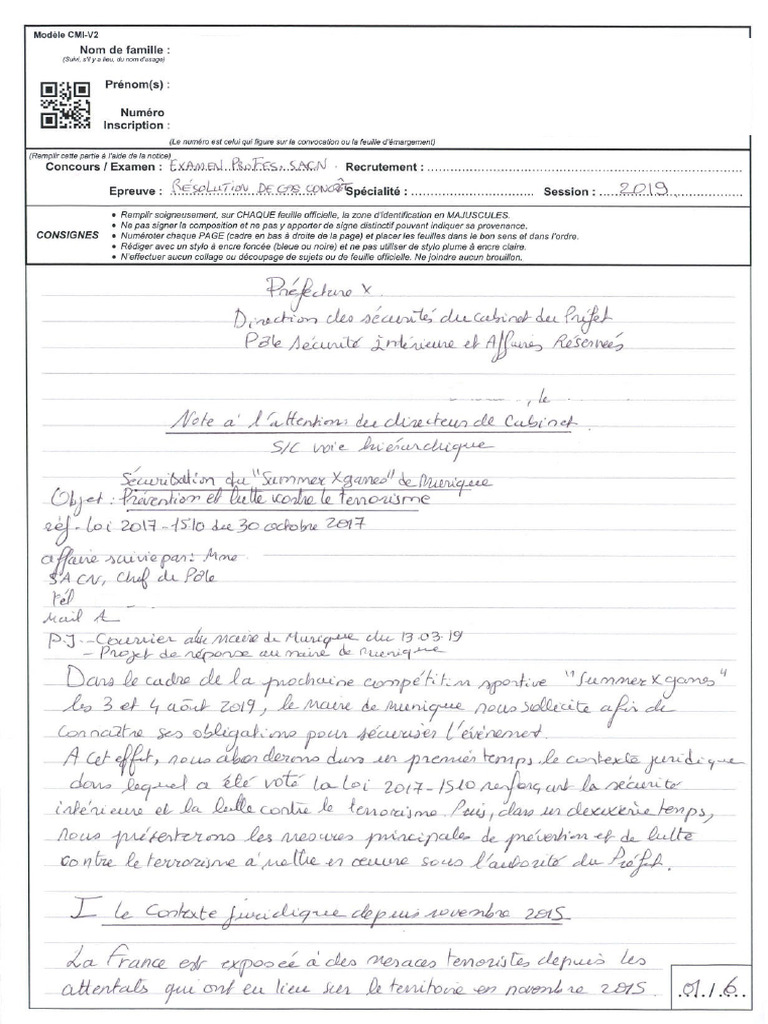 Modèle CMI-V2
Nom de famille :
(Suivi, s'il y a lieu, du nom d'usage)
Prénom(s) :
Numéro
Inscription :
(Le numéro est celui qui figure sur la convocation ou la feuille d'émargement)
(Remplir cette partie à l'aide de la notice)
Concours / Examen : EXAMEN PROFES. SACN. Recrutement :
Epreuve : RÉSOLUTION DE CAS CONCRÊT Spécialité : Session : 2019
CONSIGNES
• Remplir soigneusement, sur CHAQUE feuille officielle, la zone d'identification en MAJUSCULES.
• Ne pas signer la composition et ne pas y apporter de signe distinctif pouvant indiquer sa provenance.
• Numéroter chaque PAGE (cadre en bas à droite de la page) et placer les feuilles dans le bon sens et dans l'ordre.
• Rédiger avec un stylo à encre foncée (bleue ou noire) et ne pas utiliser de stylo plume à encre claire.
• N'effectuer aucun collage ou découpage de sujets ou de feuille officielle. Ne joindre aucun brouillon.
Préfecture X.
Direction des sécurités du cabinet du Préfet
Pôle Sécurité Intérieure et Affaires Réservées
, le
Note à l'attention du directeur de Cabinet.
S/C voie hiérarchique
Sécurisation du "Summer X games" de Munique
Objet : Prévention et lutte contre le terrorisme
réf - Loi 2017-1510 du 30 octobre 2017
affaire suivie par : Mme
SACN, Chef de Pôle
Tél
Mail
P.J. - Courrier du maire de Munique du 13.03.19
- Projet de réponse au maire de Munique
Dans le cadre de la prochaine compétition sportive "Summer X games"
les 3 et 4 août 2019, le maire de Munique nous sollicite afin de
connaître ses obligations pour sécuriser l'événement.
A cet effet, nous aborderons dans un premier temps le contexte juridique
dans lequel a été voté la Loi 2017-1510 renforçant la sécurité
intérieure et la lutte contre le terrorisme. Puis, dans un deuxième temps,
nous présenterons les mesures principales de prévention et de lutte
contre le terrorisme à mettre en œuvre sous l'autorité du Préfet.
I le Contexte juridique depuis novembre 2015
La France est exposée à des menaces terroristes depuis les
attentats qui ont eu lieu sur le territoire en novembre 2015.
01 / 6